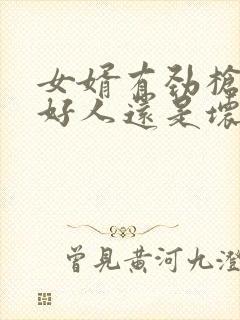 女婿有劲枪
好人还是坏
曾見黄河九澄